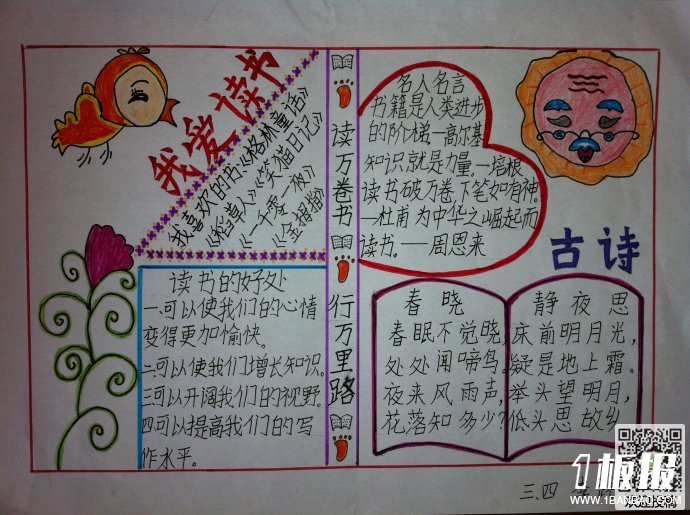 我爱读书
我喜欢的书《格林童话》
《稻草人》《笑猫日记》
《一千零一夜》
《金拇指》
读书的好处
一可以使我们的心情
变得更加愉快。
二可以使我们增长知识。
三可以开阔我们的视野。
四可以提高我们的写
作水平。
读万卷书
行万里路
名人名言
书籍是人类进步
的阶梯—高尔基
知识就是力量。—培根
读书破万卷下笔如有神。
—杜甫 为中华之崛起而
读书。——周恩来
古诗
春晓
春眠不觉晓,
处处闻啼鸟。
夜来风雨声,
花落知多少?
静夜思
床前明月光,
疑是地上霜。
举头望明月,
低头思故乡
三、四
1板报
WWW.1BANBAO.COM
欢迎投稿